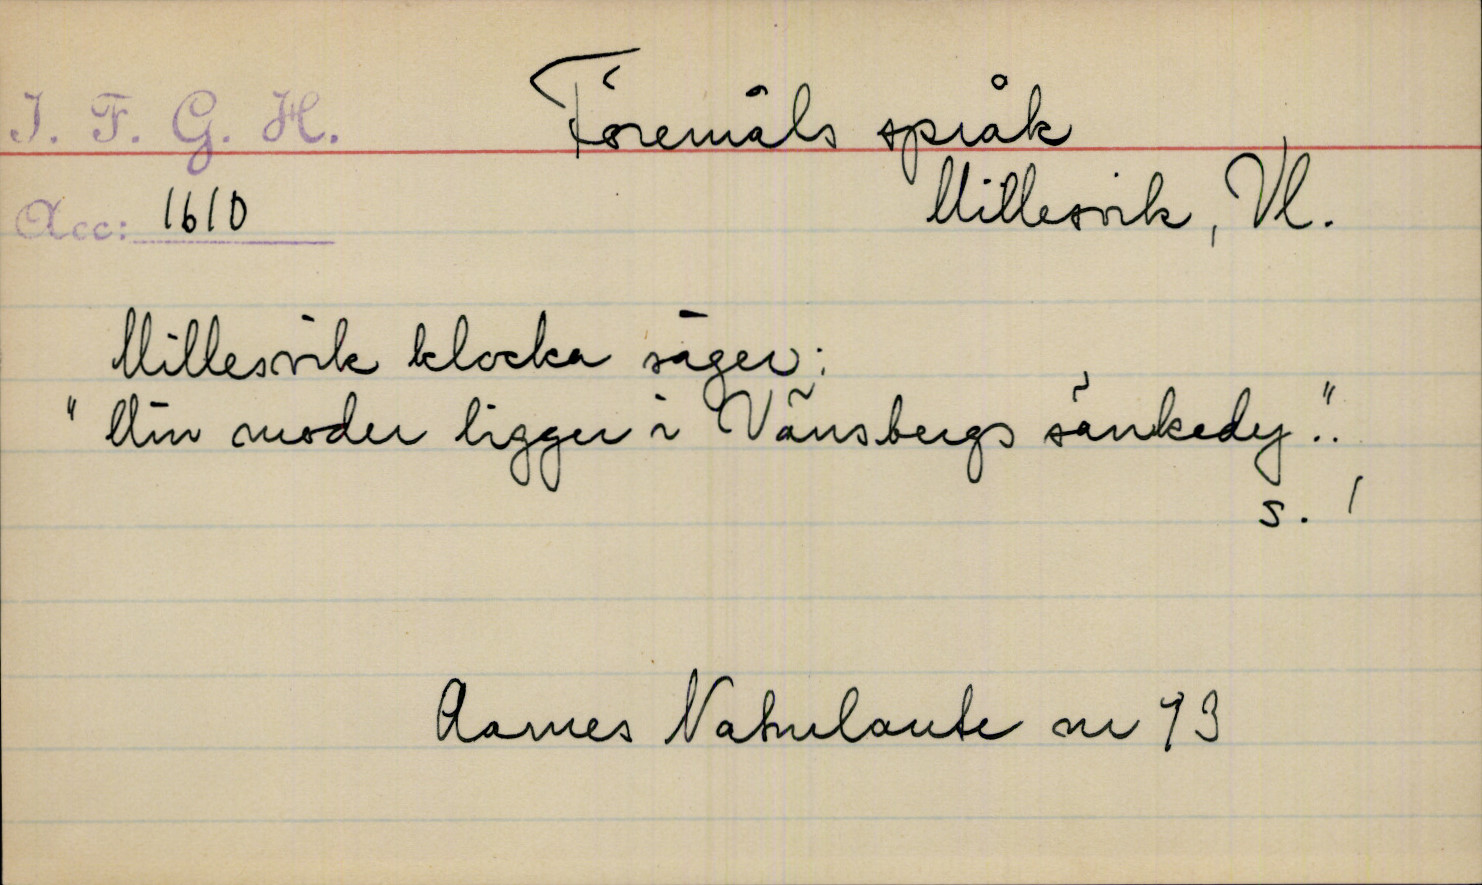 I. F. G. H.
Föremåls språk
Acc: 1610
Millesvik, Vl.
Millesvik klocka säger:
"Min moder ligger i Vänsbergs sänkedy".
s. 1
Aarnes Naturlaute nr 73